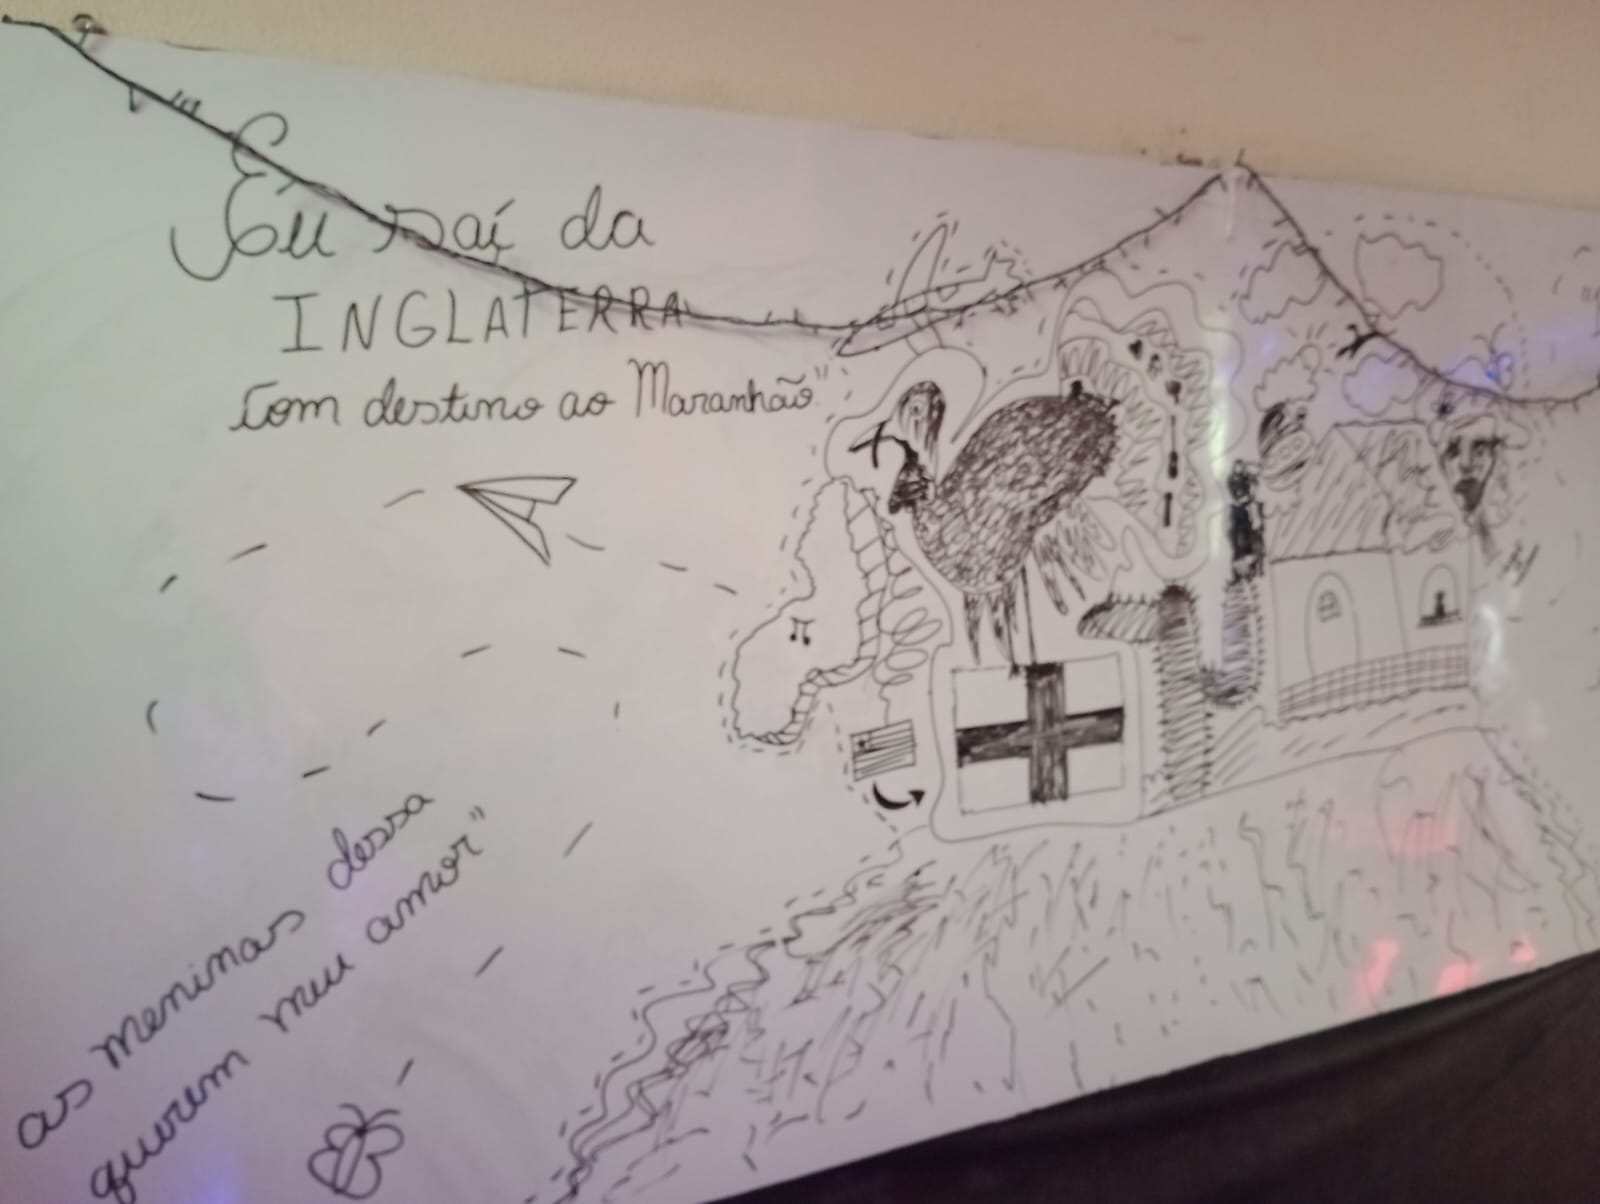 Eu saí da
INGLATERRA
Com destino ao Maranhão"
as meninas dessa
querem meu amor"